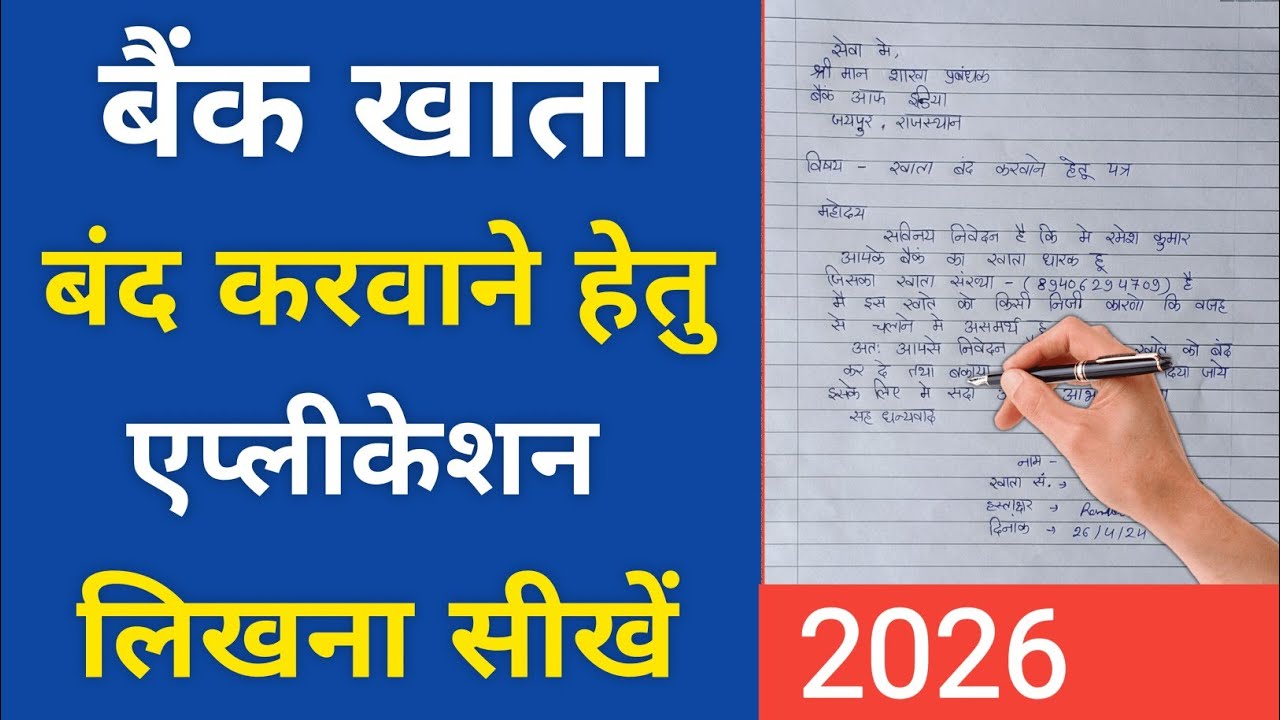 बैंक खाता
बंद करवाने हेतु
एप्लीकेशन
लिखना सीखें
सेवा मे,
श्री मान शाखा प्रबंधक
बैंक आफ इंडिया
जयपुर, राजस्थान
विषय - खाता बंद करवाने हेतू पत्र
महोदय
सविनय निवेदन है कि मे रमेश कुमार
आपके बैंक का खाता धारक हू
जिसका खाता संख्या - (89406294709) है
मै इस खाते को किसी निजी कारणा कि वजह
से चलाने मे असमर्थ हू
अतः आपसे निवेदन खाते को बंद
कर दे तथा बकाया दिया जाये
इसके लिए मे सदा
सह धन्यवाद
नाम -
खाता सं. →
हस्ताक्षर →
दिनाक → 26/4/24
2026